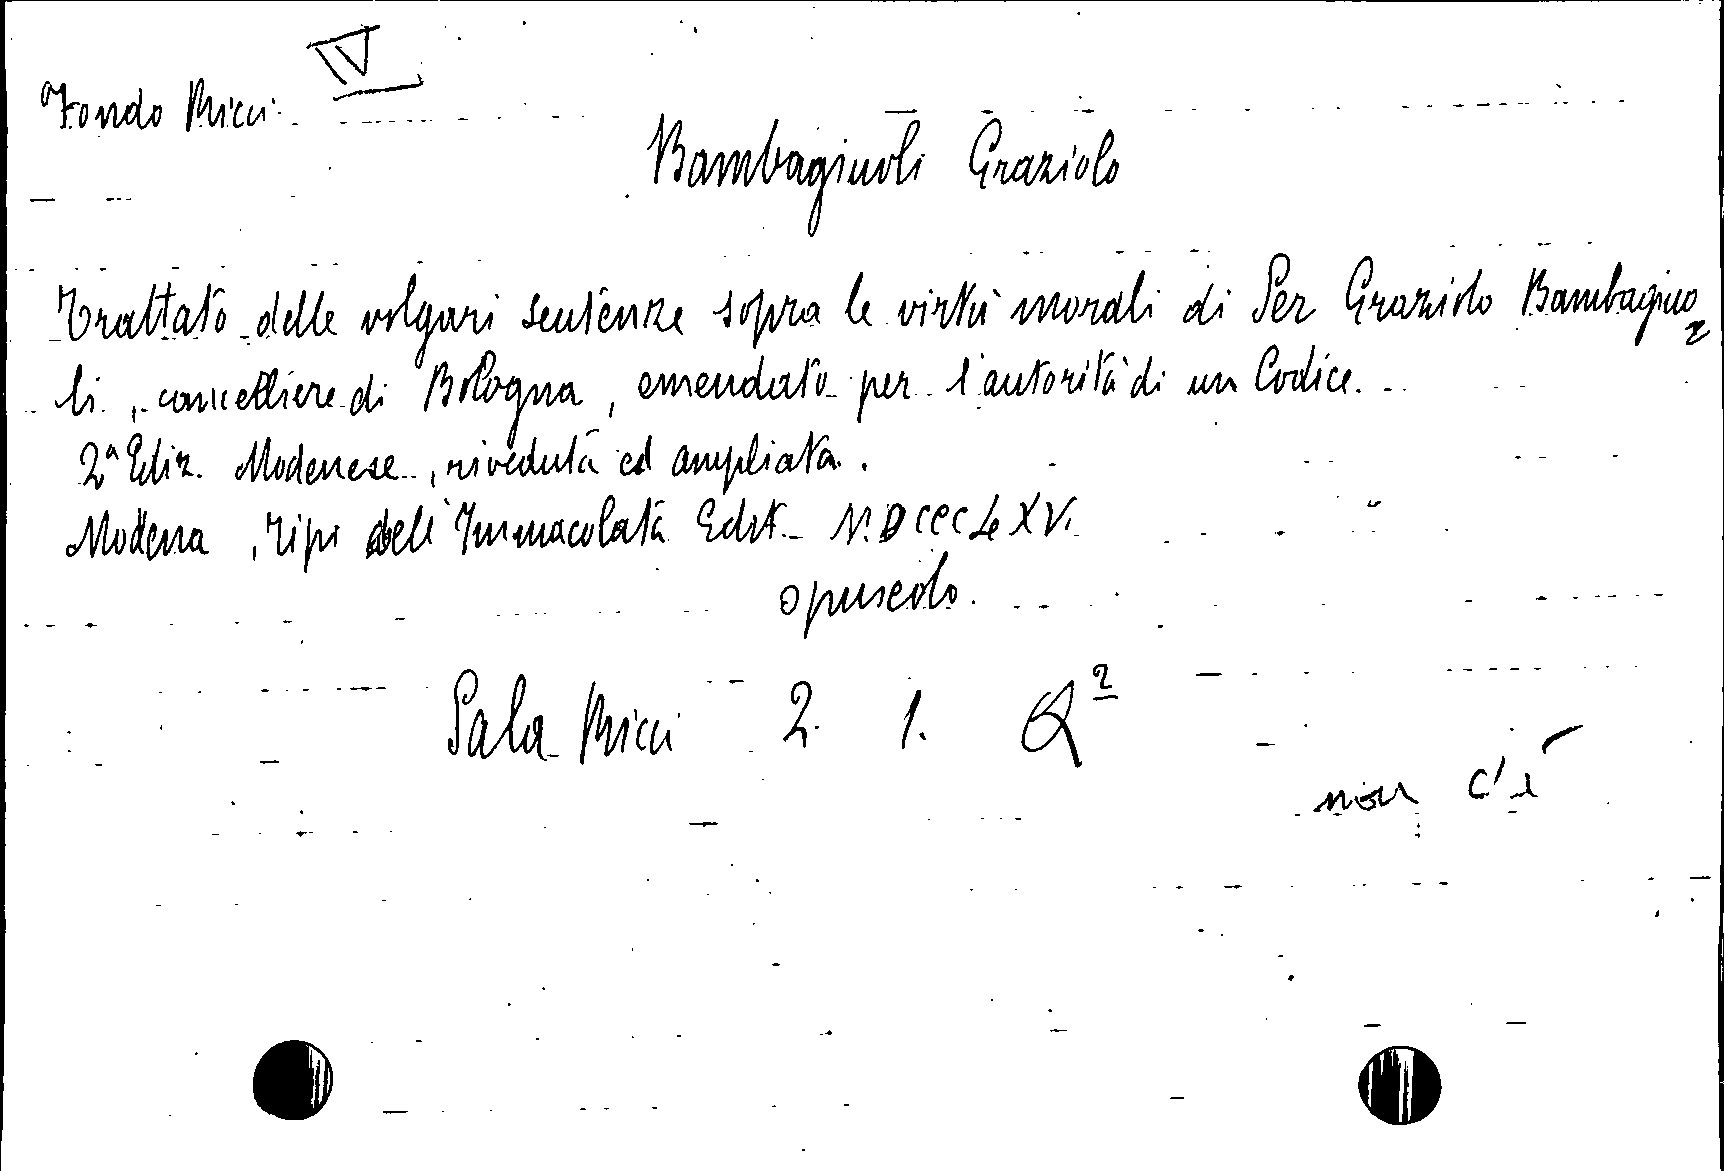 IV
Fondo Ricci
Bambagiuoli Graziolo
Trattato delle volgari sentenze sopra le virtù morali di Ser Graziolo Bambagiuo=
li, cancelliere di Bologna, emendato per l'autorità di un Codice.
2ª Ediz. Modenese, riveduta ed ampliata.
Modena, Tipi dell'Immacolata Edit. M.DCCCLXV.
opuscolo.
Sala Ricci 2. 1. Q²
non c'è